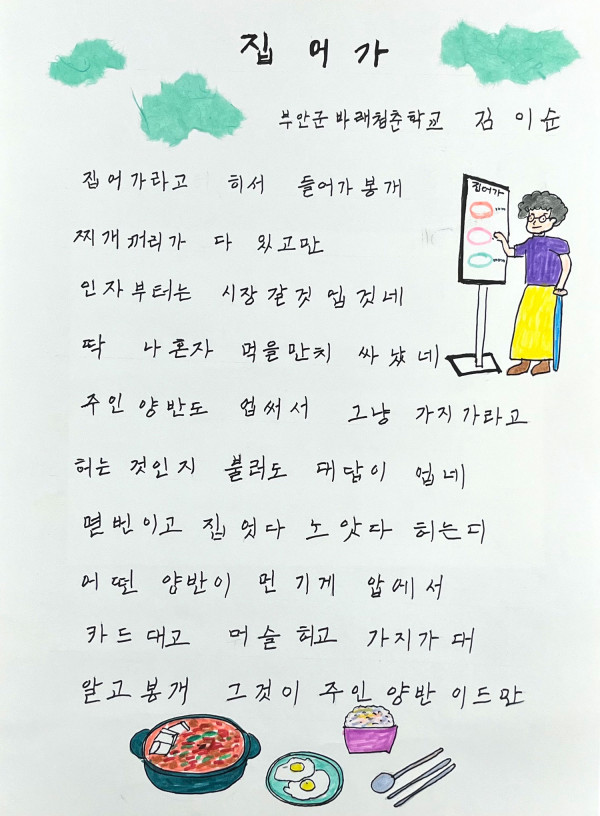 집 어 가
부안군 바래청춘학교 김 이 순
집어가라고 히서 들어가봉개
집어가
찌개꺼리가 다 있고만
인자부터는 시장갈것 업것네
딱 나혼자 먹을만치 싸놨네
주인 양반도 업써서 그냥 가지가라고
허는 것인지 불러도 대답이 업네
몇번이고 집었다 노았다 허는디
어떤 양반이 먼 기게 압에서
카드대고 머슬 허고 가지가대
알고봉개 그것이 주인 양반 이드만